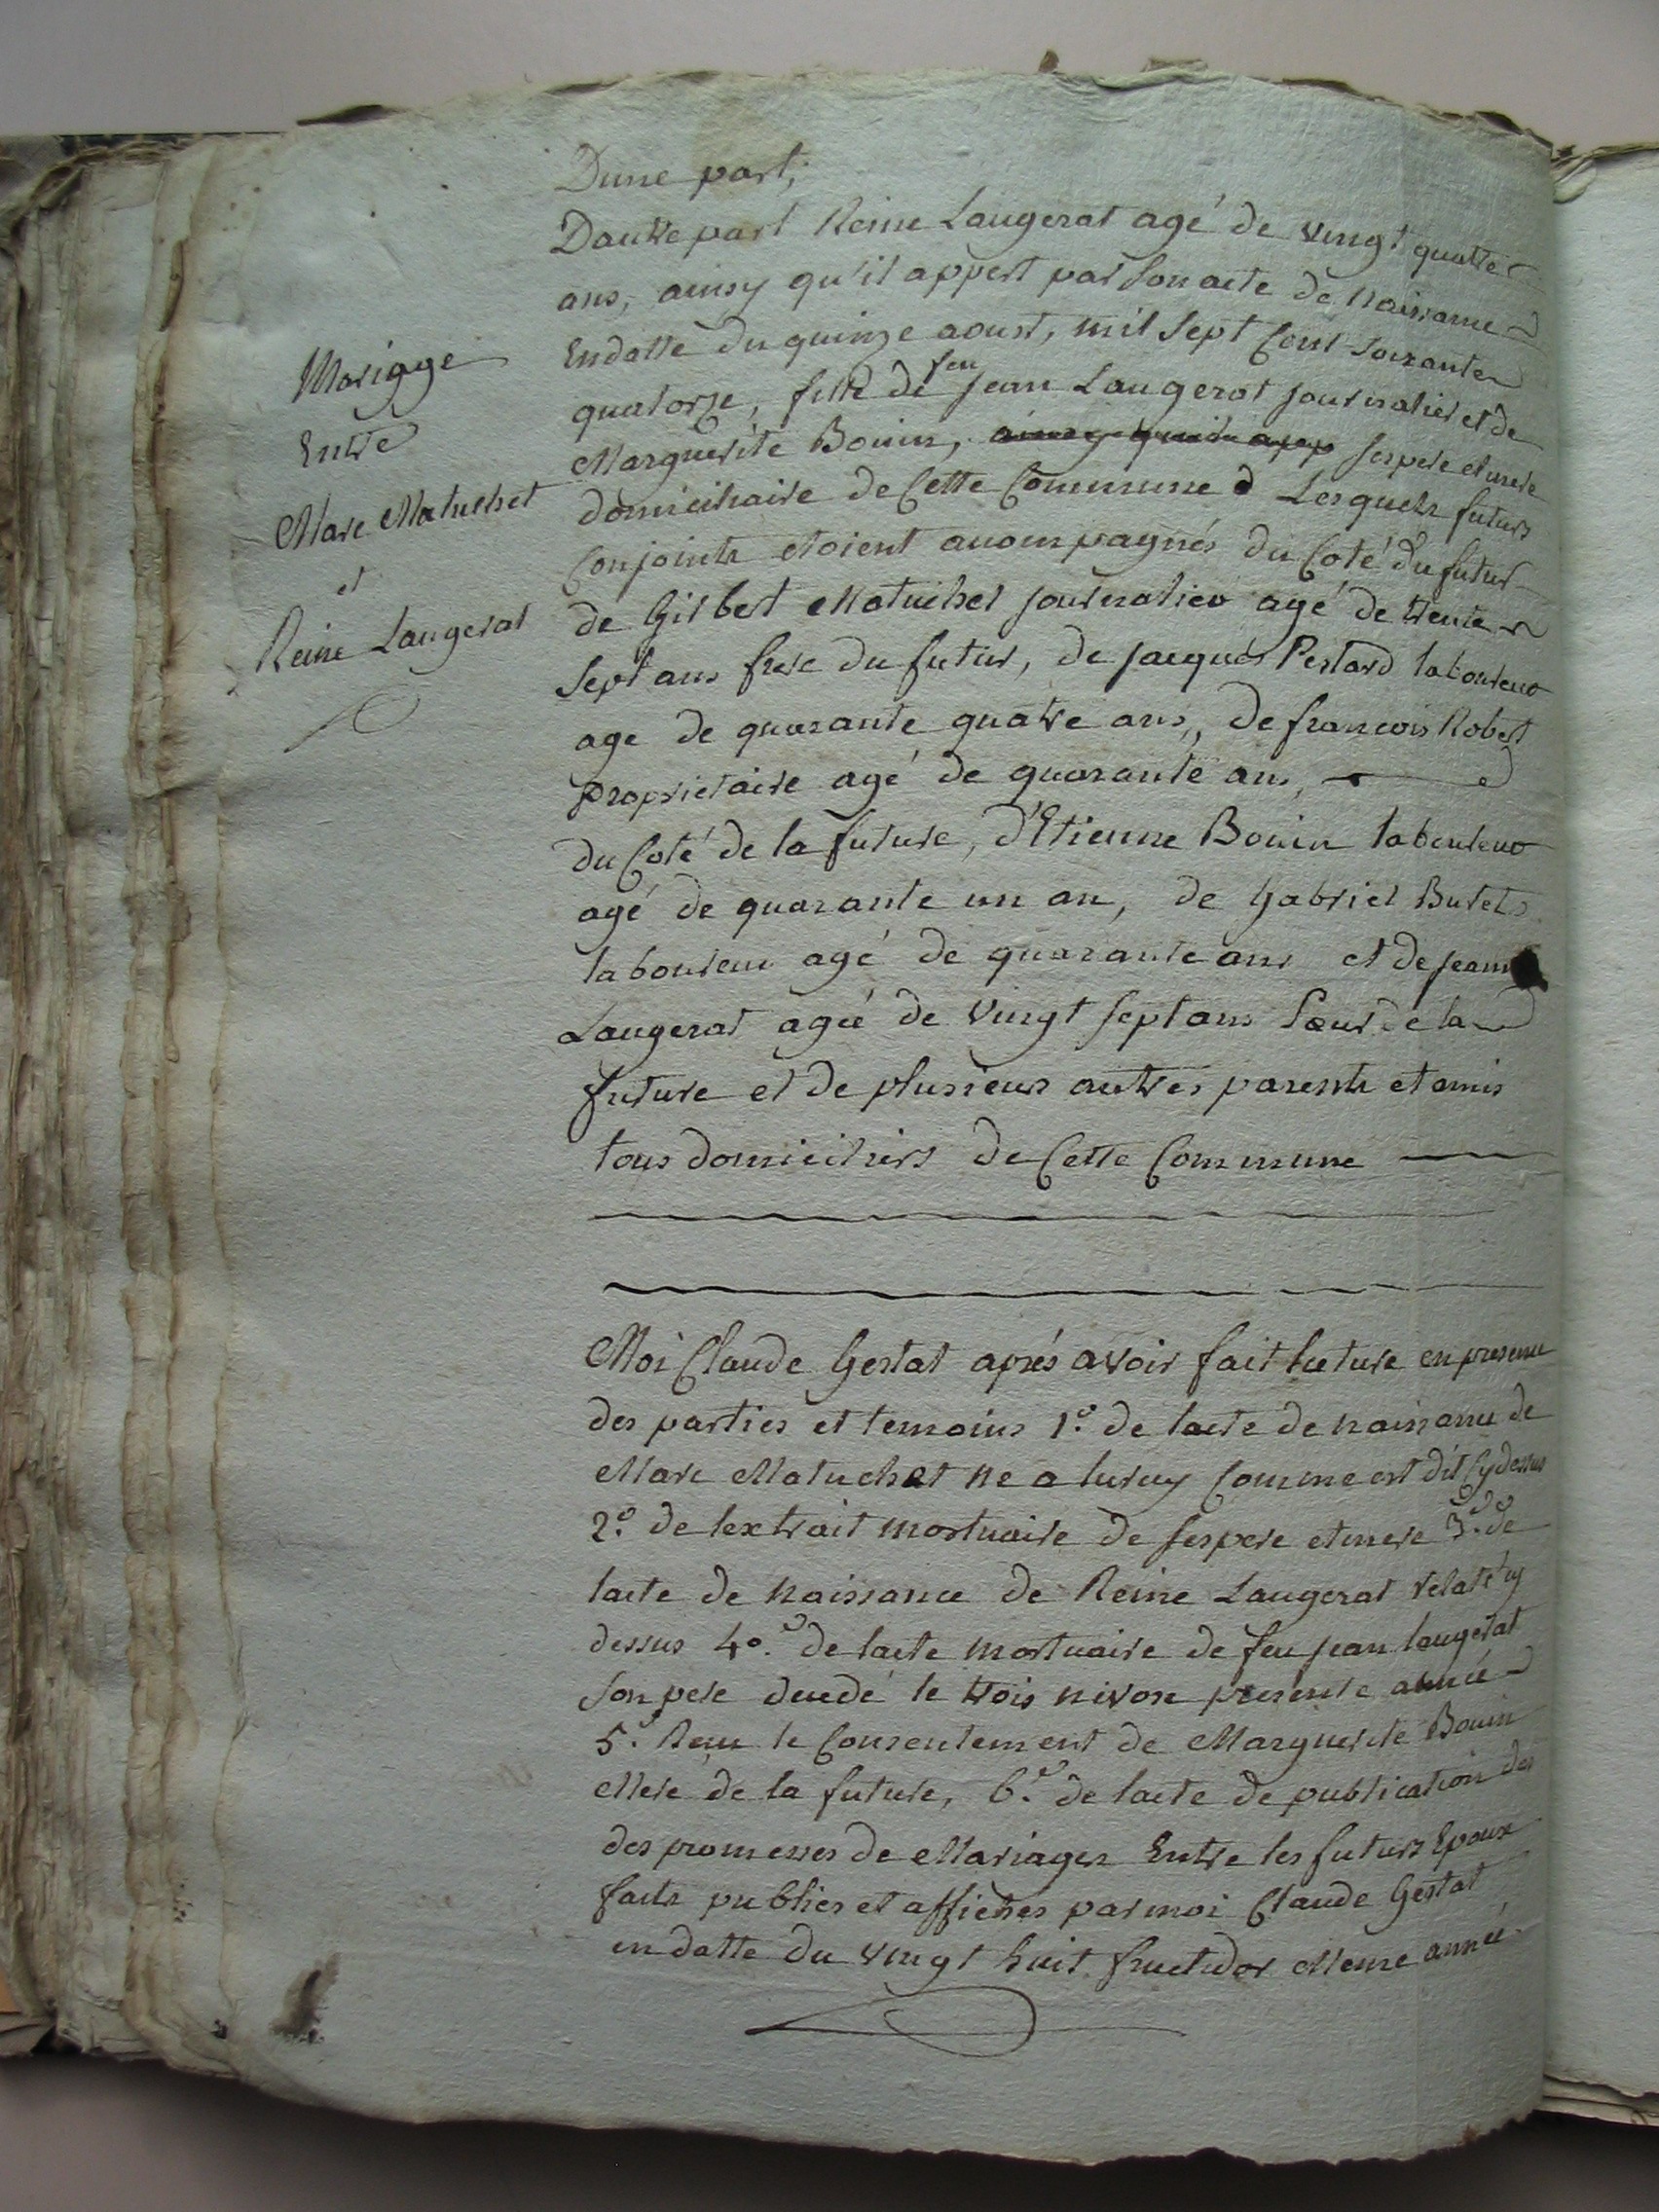 Mariage
Entre
Marc Matuchet
et
Reine Laugerat
Dune part,
Dautre part Reine Laugerat agé de vingt quatre
ans, ainsy qu'il appert par son acte de naissance
Endatte du quinze aoust, mil sept Cent soixante
quatorze, fille de feu jean Laugerat journalier et de
Marguerite Bouin, ses pere et mere
domiciliaire de Cette Commune Lesquels futurs
Conjoints etoient accompagnés du Coté du futur
de Gilbert Matuchet journalier agé de trente
sept ans frere du futur, de jacques Pestard laboureur
age de quarante quatre ans, de francois Robert
proprietaire agé de quarante ans,
du Coté de la future, d'Etienne Bouin laboureur
agé de quarante un an, de Gabriel Buret
laboureur agé de quarante ans et de jeanne
Laugerat agée de vingt sept ans Sœur de la
future et de plusieurs autres parents et amis
tous domiciliers de Cette Commune
Moi Claude Gestat aprés avoir fait lecture en presence
des parties et temoins 1º. de lacte de naissance de
Marc Matuchet ne a lurcy Comme est dit Cydessus
2º. de lextrait mortuaire de ses pere et mere 3º. de
lacte de naissance de Reine Laugerat relaté cy
dessus 4º. de lacte mortuaire de feu jean laugerat
son pere decedé le trois nivose presente année
5º. Recu le Consentement de Marguerite Bouin
Mere de la future, 6º. de lacte de publication des
des promesses de Mariages Entre les futurs Epoux
faits publies et affiches par moi Claude Gestat
en datte du vingt huit fructidor Meme année